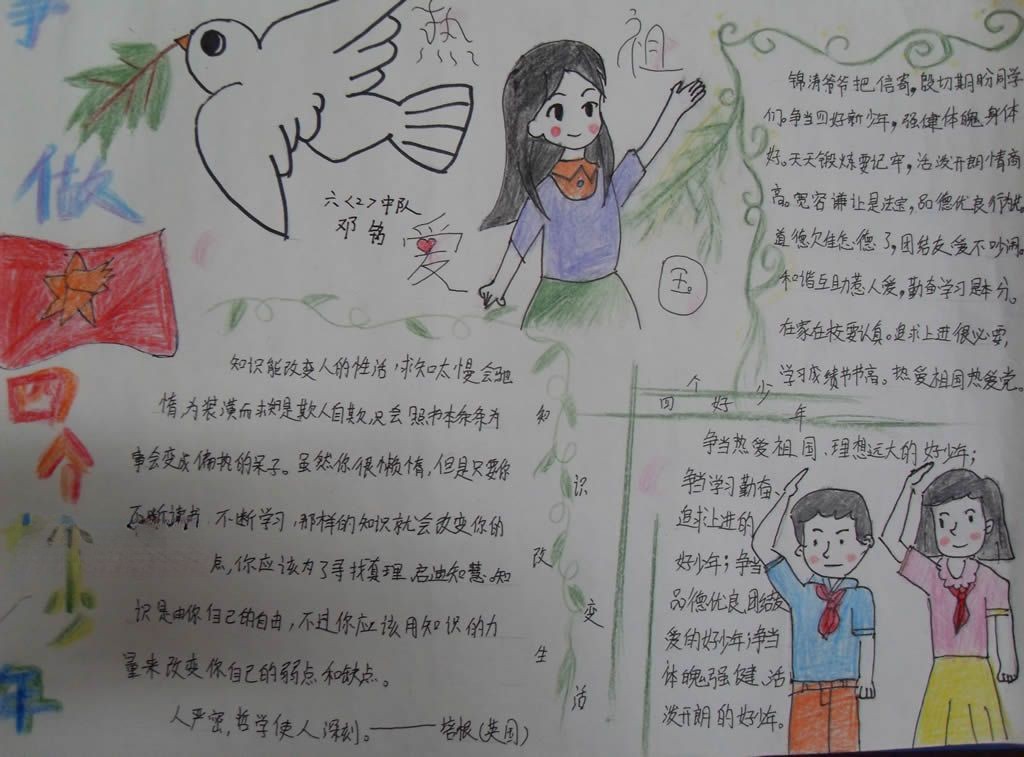 争
做
四
个
少
年
热
爱
祖
国
六<2>中队
邓
锦涛爷爷把信寄,殷切期盼同学
们。争当四好新少年,强健体魄身体
好。天天锻炼要记牢,活泼开朗情商
高。宽容谦让是法宝,品德优良行为优。
道德欠佳怎德了,团结友爱不吵闹。
和谐互助惹人爱,勤奋学习是本分。
在家在校要认真。追求上进很必要,
学习成绩节节高。热爱祖国热爱党。
知识能改变人的性活,求知太慢会驰
惰,为装潢而求知是欺人自欺,只会照书本条条办
事会变成偏执的呆子。虽然你很懒惰,但是只要你
不断读书 不断学习,那样的知识就会改变你的
点,你应该为了寻找真理,启迪知慧.知
识是由你自己的自由,不过你应该用知识的力
量来改变你自己的弱点和缺点。
人严密,哲学使人深刻。——培根(英国)
知识改变生活
四个好少年
争当热爱祖国、理想远大的好少年;
争当学习勤奋、
追求上进的
好少年;争当
品德优良、团结友
爱的好少年;争当
体魄强健、活
泼开朗的好少年。